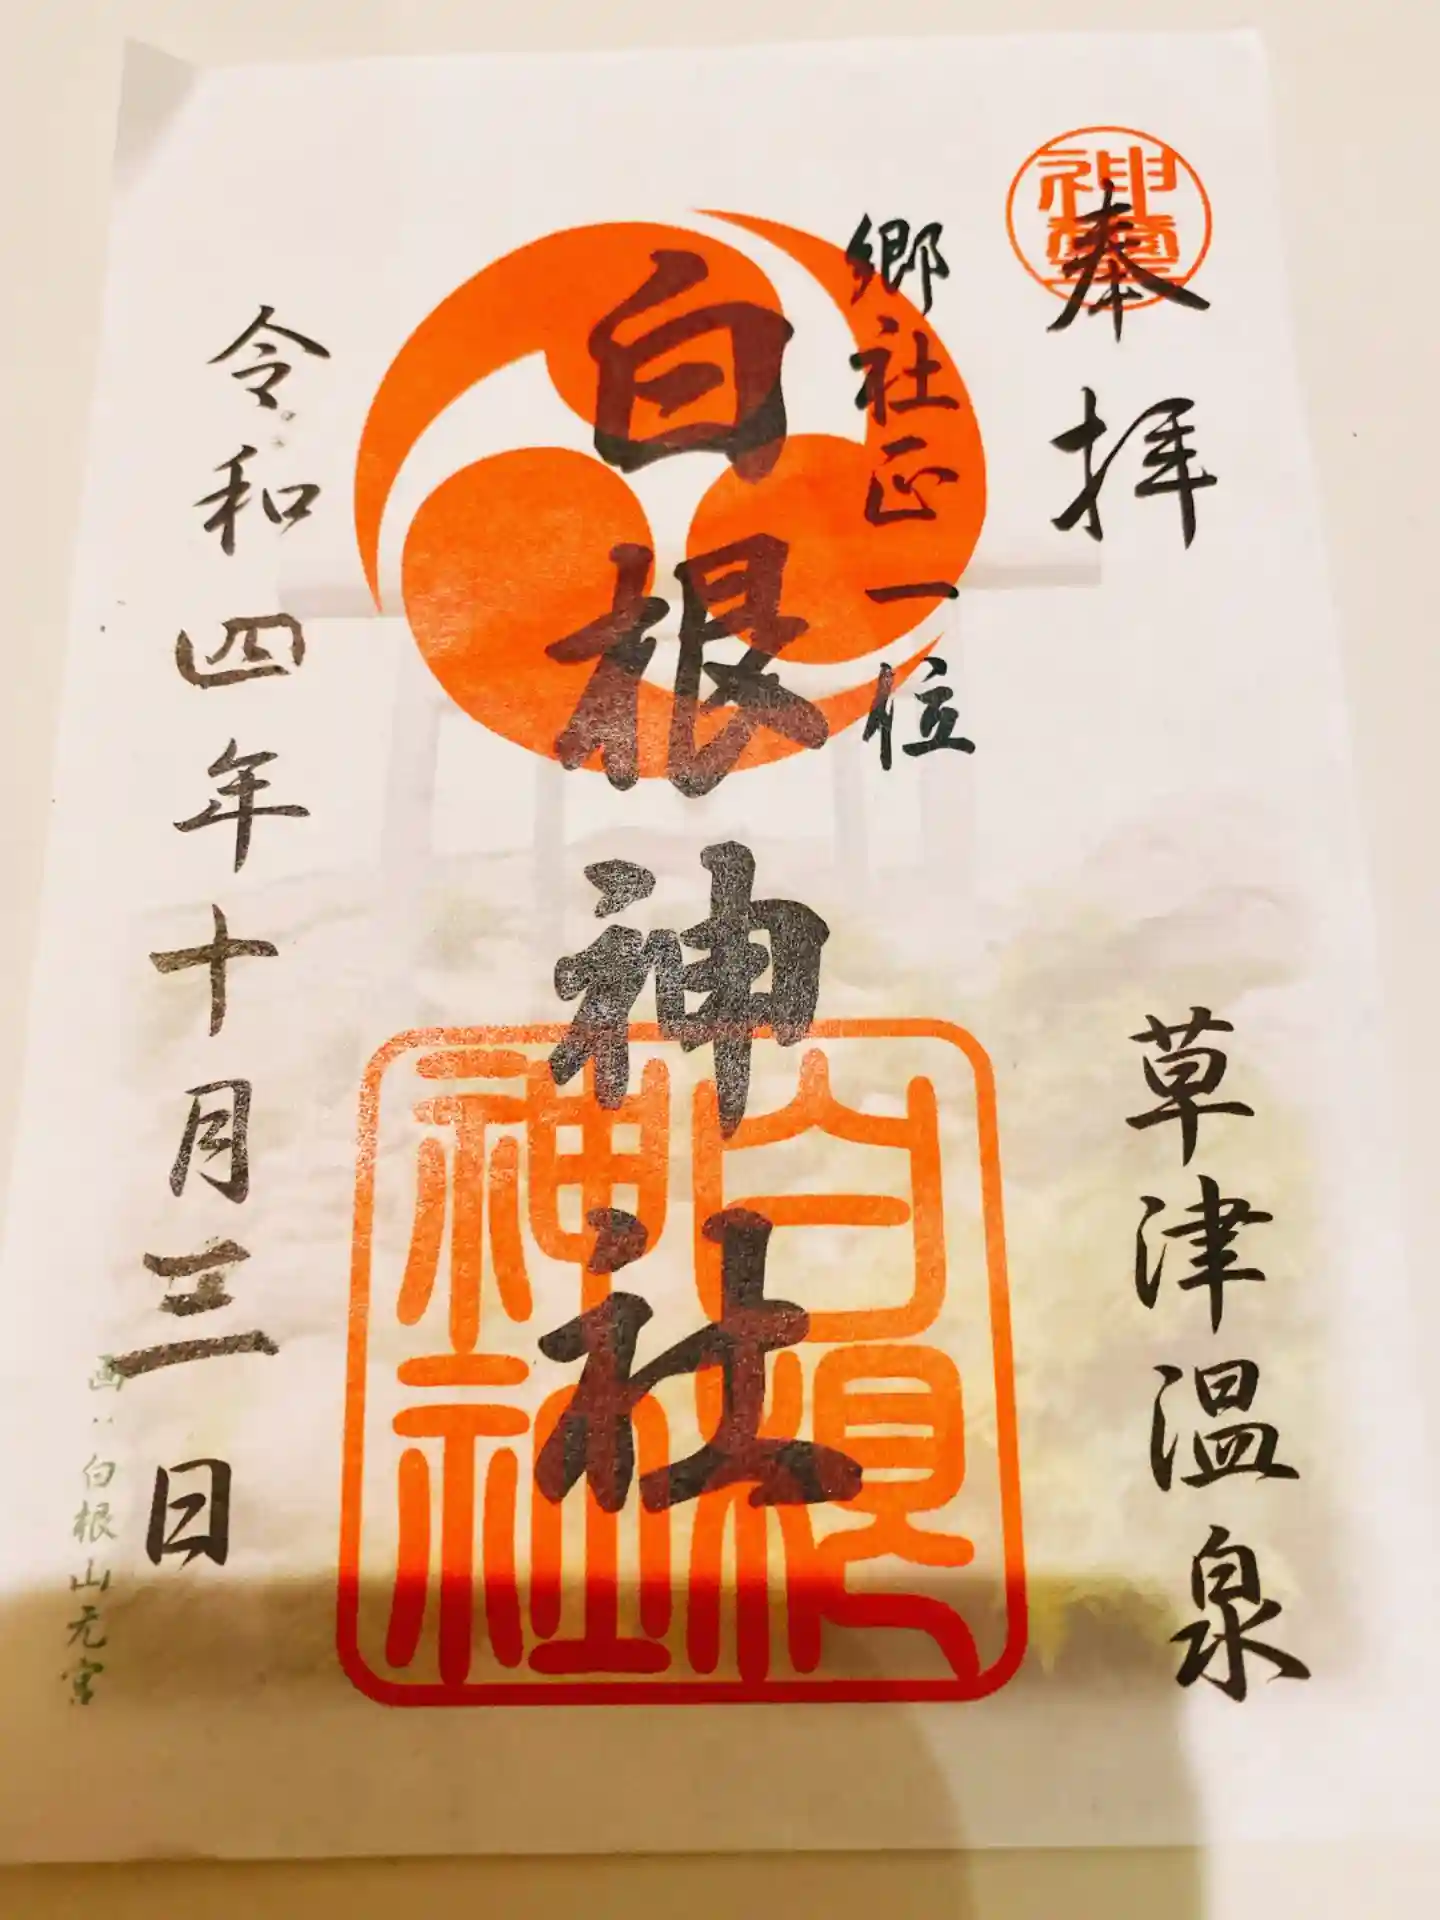 奉拝
草津温泉
郷社正一位
白根神社
令和四年十月三日
画：白根山元宮
白根
神社